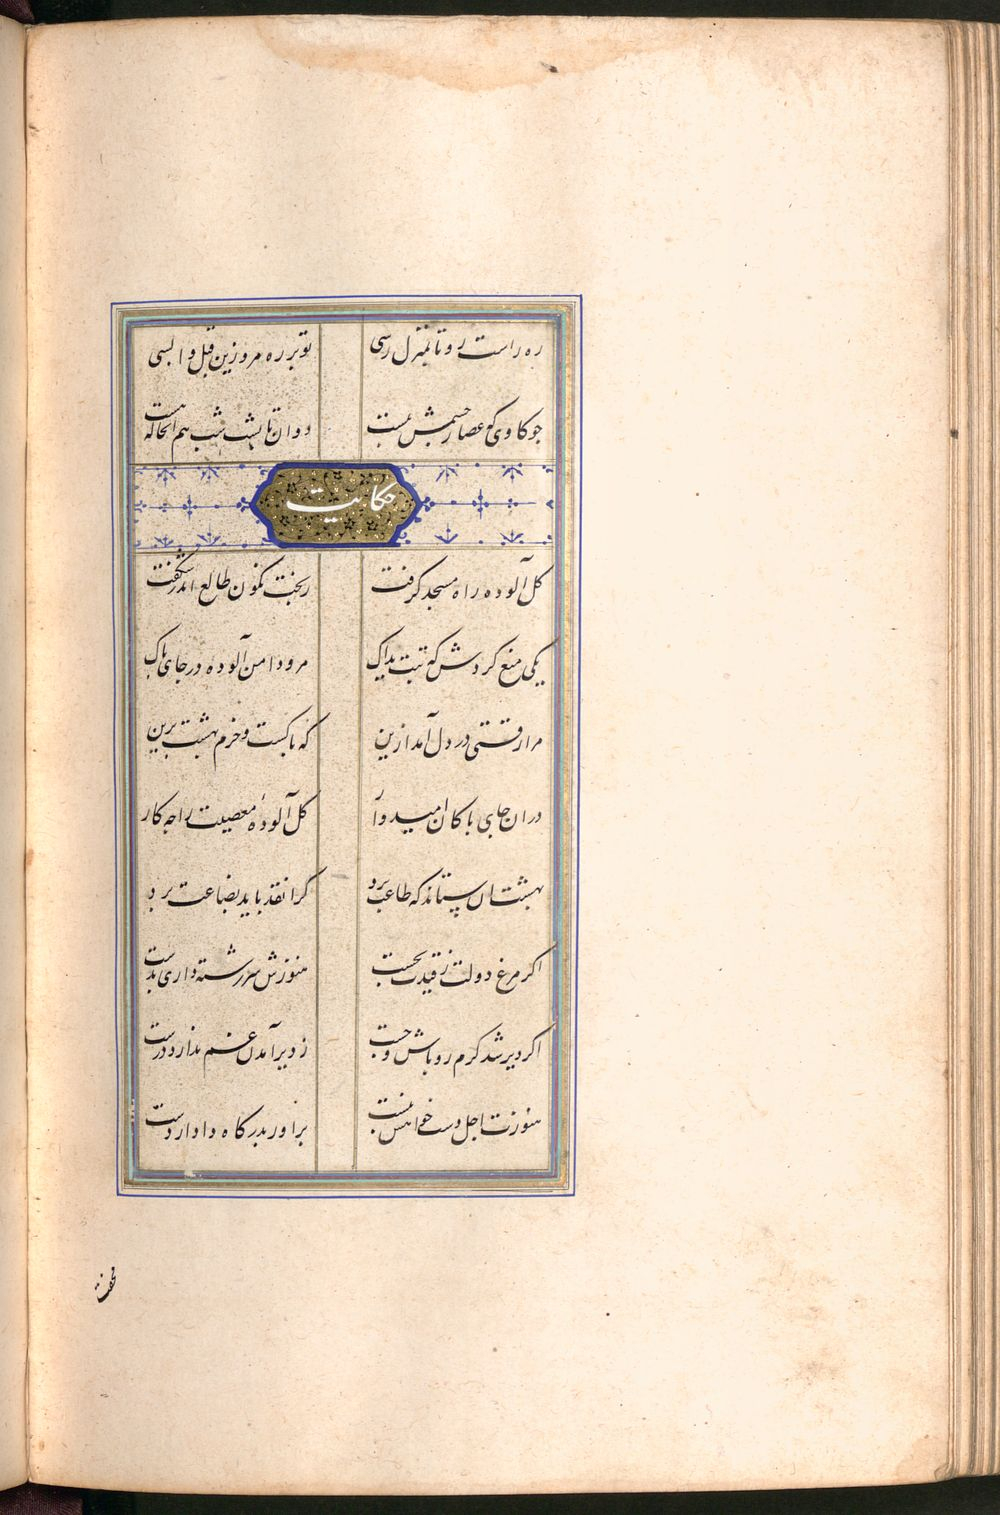 ره راست رو تا بمنزل رسی تو بر ره مرو زین قبل واپسی
چو کاوی که عصار چشمش ببست دوان تا بشب شب هم آنجا که هست
حکایت
کل آلوده راه مسجد کرفت ز بخت نکون طالع اندر شکفت
یکی منع کردش که تبت یداک مرو دامن آلوده در جای پاک
مرا رقتی در دل آمد ازین که پاکست و خرم بهشت برین
در آن جای پاکان امیدوار کل آلودهٔ معصیت را چه کار
بهشت آن ستاند که طاعت برد کرا نقد باید بضاعت برد
اکر مرغ دولت ز قیدت بجست هنوزش سر رشته داری بدست
اکر دیر شد کرم رو باش و چست ز دیر آمدن غم ندارد درست
هنوزت اجل دست خواهش نبست برآور بدرکاه دادار دست